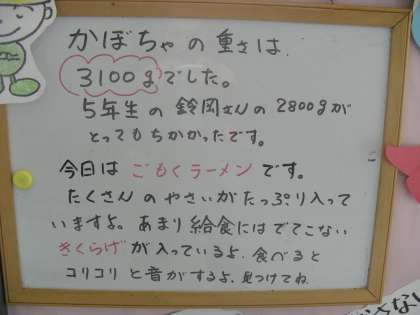 かぼちゃの重さは
3100gでした。
5年生の鈴岡さんの2800gが
とってもちかかったです。
今日はごもくラーメンです。
たくさんのやさいがたっぷり入って
いますよ。あまり給食にはでてこない
きくらげが入っているよ。食べると
コリコリと音がするよ。見つけてね